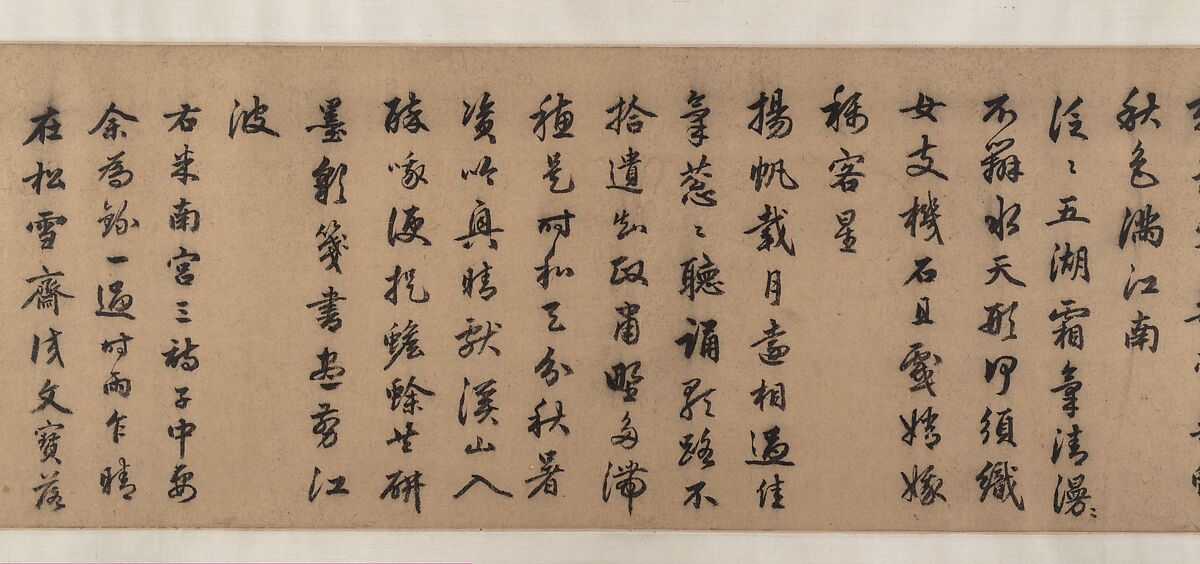 秋色滿江南
泛〻五湖霜氣清漫〻
不辨水天形何須織
女支機石且戲嫦娥
稱客星
揚帆載月遠相過佳
氣蔥〻聽誦歌路不
拾遺知政肅野多滯
穗是时和天分秋暑
資吟興晴獻溪山入
醉哦便捉蟾蜍共研
墨彩箋書盡剪江
波
右米南宮三詩子中要
余為錄一過时雨乍晴
在松雪齋試文寶落